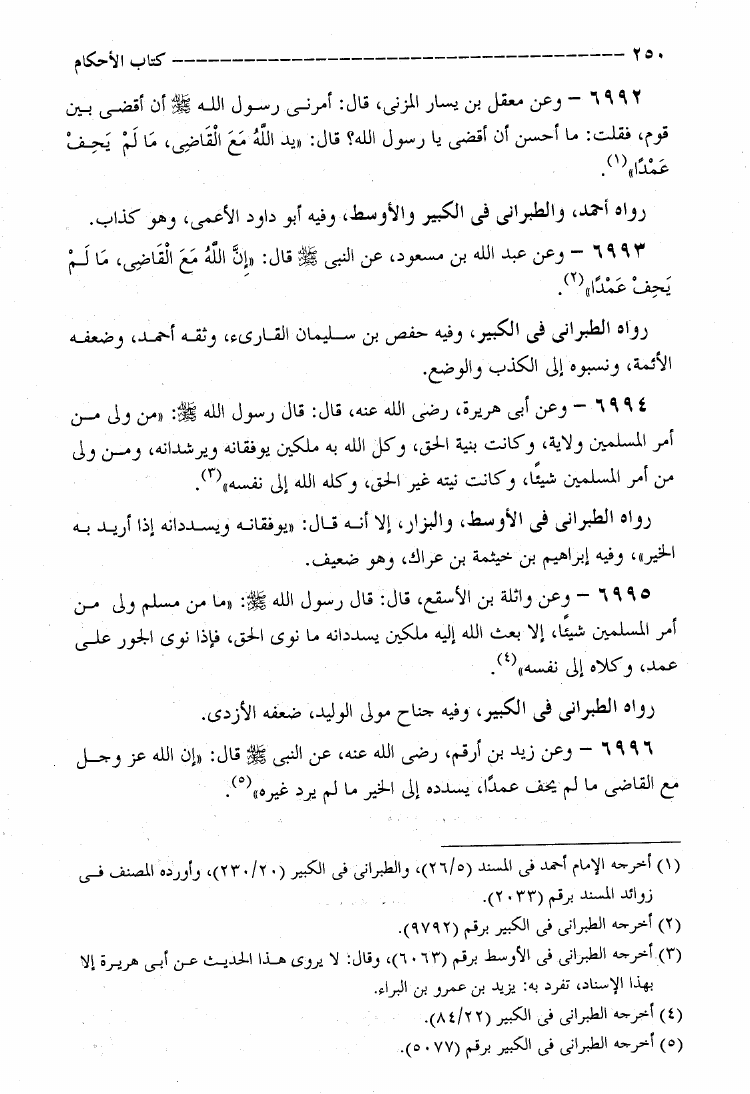 ٢٥٠ ------------------------------------------ كتاب الأحكام
٦٩٩٢ – وعن معقل بن يسار المزنى، قال: أمرنى رسول الله ﷺ أن أقضى بين
قوم، فقلت: ما أحسن أن أقضى يا رسول الله؟ قال: «يد اللَّهُ مَعَ الْقَاضِى، مَا لَمْ يَحِفْ
عَمْدًا»(١).
رواه أحمد، والطبرانى فى الكبير والأوسط، وفيه أبو داود الأعمى، وهو كذاب.
٦٩٩٣ – وعن عبد الله بن مسعود، عن النبى ﷺ قال: «إِنَّ اللَّهُ مَعَ الْقَاضِى، مَا لَمْ
يَحِفْ عَمْدًا»(٢).
رواه الطبرانى فى الكبير، وفيه حفص بن سليمان القارىء، وثقه أحمد، وضعفه
الأئمة، ونسبوه إلى الكذب والوضع.
٦٩٩٤ – وعن أبى هريرة، رضى الله عنه، قال: قال رسول الله ﷺ: «من ولى من
أمر المسلمين ولاية، وكانت بنية الحق، وكل الله به ملكين يوفقانه ويرشدانه، ومن ولى
من أمر المسلمين شيئًا، وكانت نيته غير الحق، وكله الله إلى نفسه»(٣).
رواه الطبرانى فى الأوسط، والبزار، إلا أنه قال: «يوفقانه ويسددانه إذا أريد به
الخير»، وفيه إبراهيم بن خيثمة بن عراك، وهو ضعيف.
٦٩٩٥ – وعن واثلة بن الأسقع، قال: قال رسول الله ﷺ: «ما من مسلم ولى من
أمر المسلمين شيئًا، إلا بعث الله إليه ملكين يسددانه ما نوى الحق، فإذا نوى الجور على
عمد، وكلاه إلى نفسه»(٤).
رواه الطبرانى فى الكبير، وفيه جناح مولى الوليد، ضعفه الأزدى.
٦٩٩٦ – وعن زيد بن أرقم، رضى الله عنه، عن النبى ﷺ قال: «إن الله عز وجل
مع القاضى ما لم يحف عمدًا، يسدده إلى الخير ما لم يرد غيره»(٥).
(١) أخرجه الإمام أحمد فى المسند (٢٦/٥)، والطبرانى فى الكبير (٢٣٠/٢٠)، وأورده المصنف فى
زوائد المسند برقم (٢٠٣٣).
(٢) أخرجه الطبرانى فى الكبير برقم (٩٧٩٢).
(٣) أخرجه الطبرانى فى الأوسط برقم (٦٠٦٣)، وقال: لا يروى هذا الحديث عن أبى هريرة إلا
بهذا الإسناد، تفرد به: يزيد بن عمرو بن البراء.
(٤) أخرجه الطبرانى فى الكبير (٨٤/٢٢).
(٥) أخرجه الطبرانى فى الكبير برقم (٥٠٧٧).